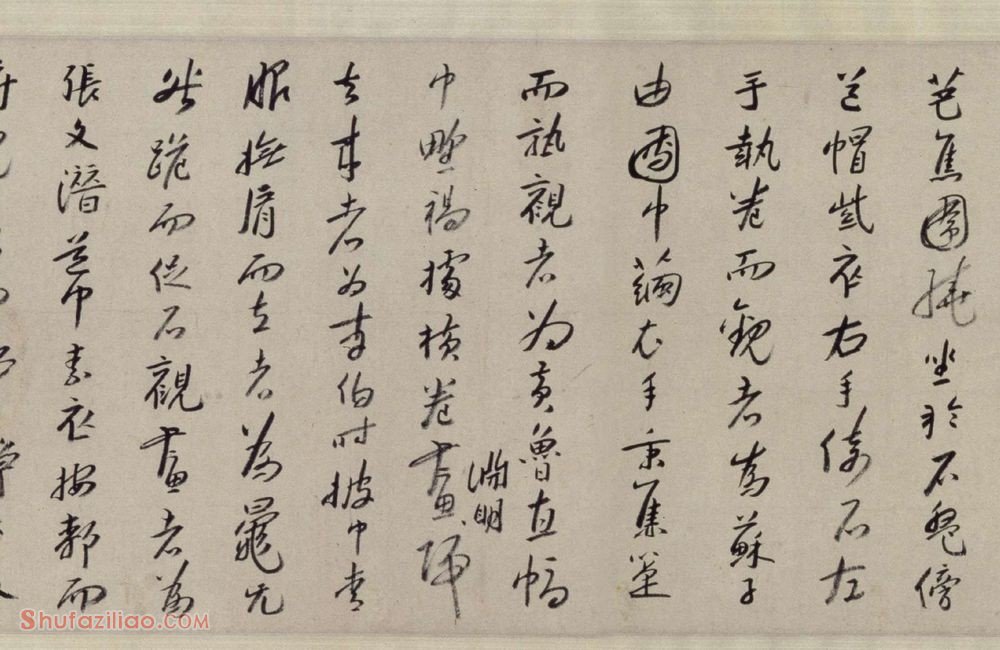 芭蕉圍繞坐於石盤傍
道帽紫衣右手倚石左
手執卷而觀者為蘇子
由團巾繭衣手秉蕉箑
而孰觀者為黃魯直幅
巾野褐據橫卷畫淵明歸
去來者為李伯時披巾青
服撫肩而立者為鼂无
咎跪而捉石觀畫者為
張文潛道巾素衣按膝而
Shufaziliao.COM